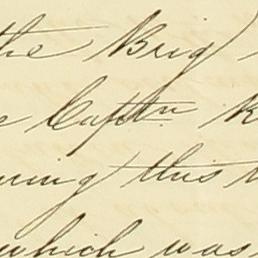 the Brig
Captn
this
which was